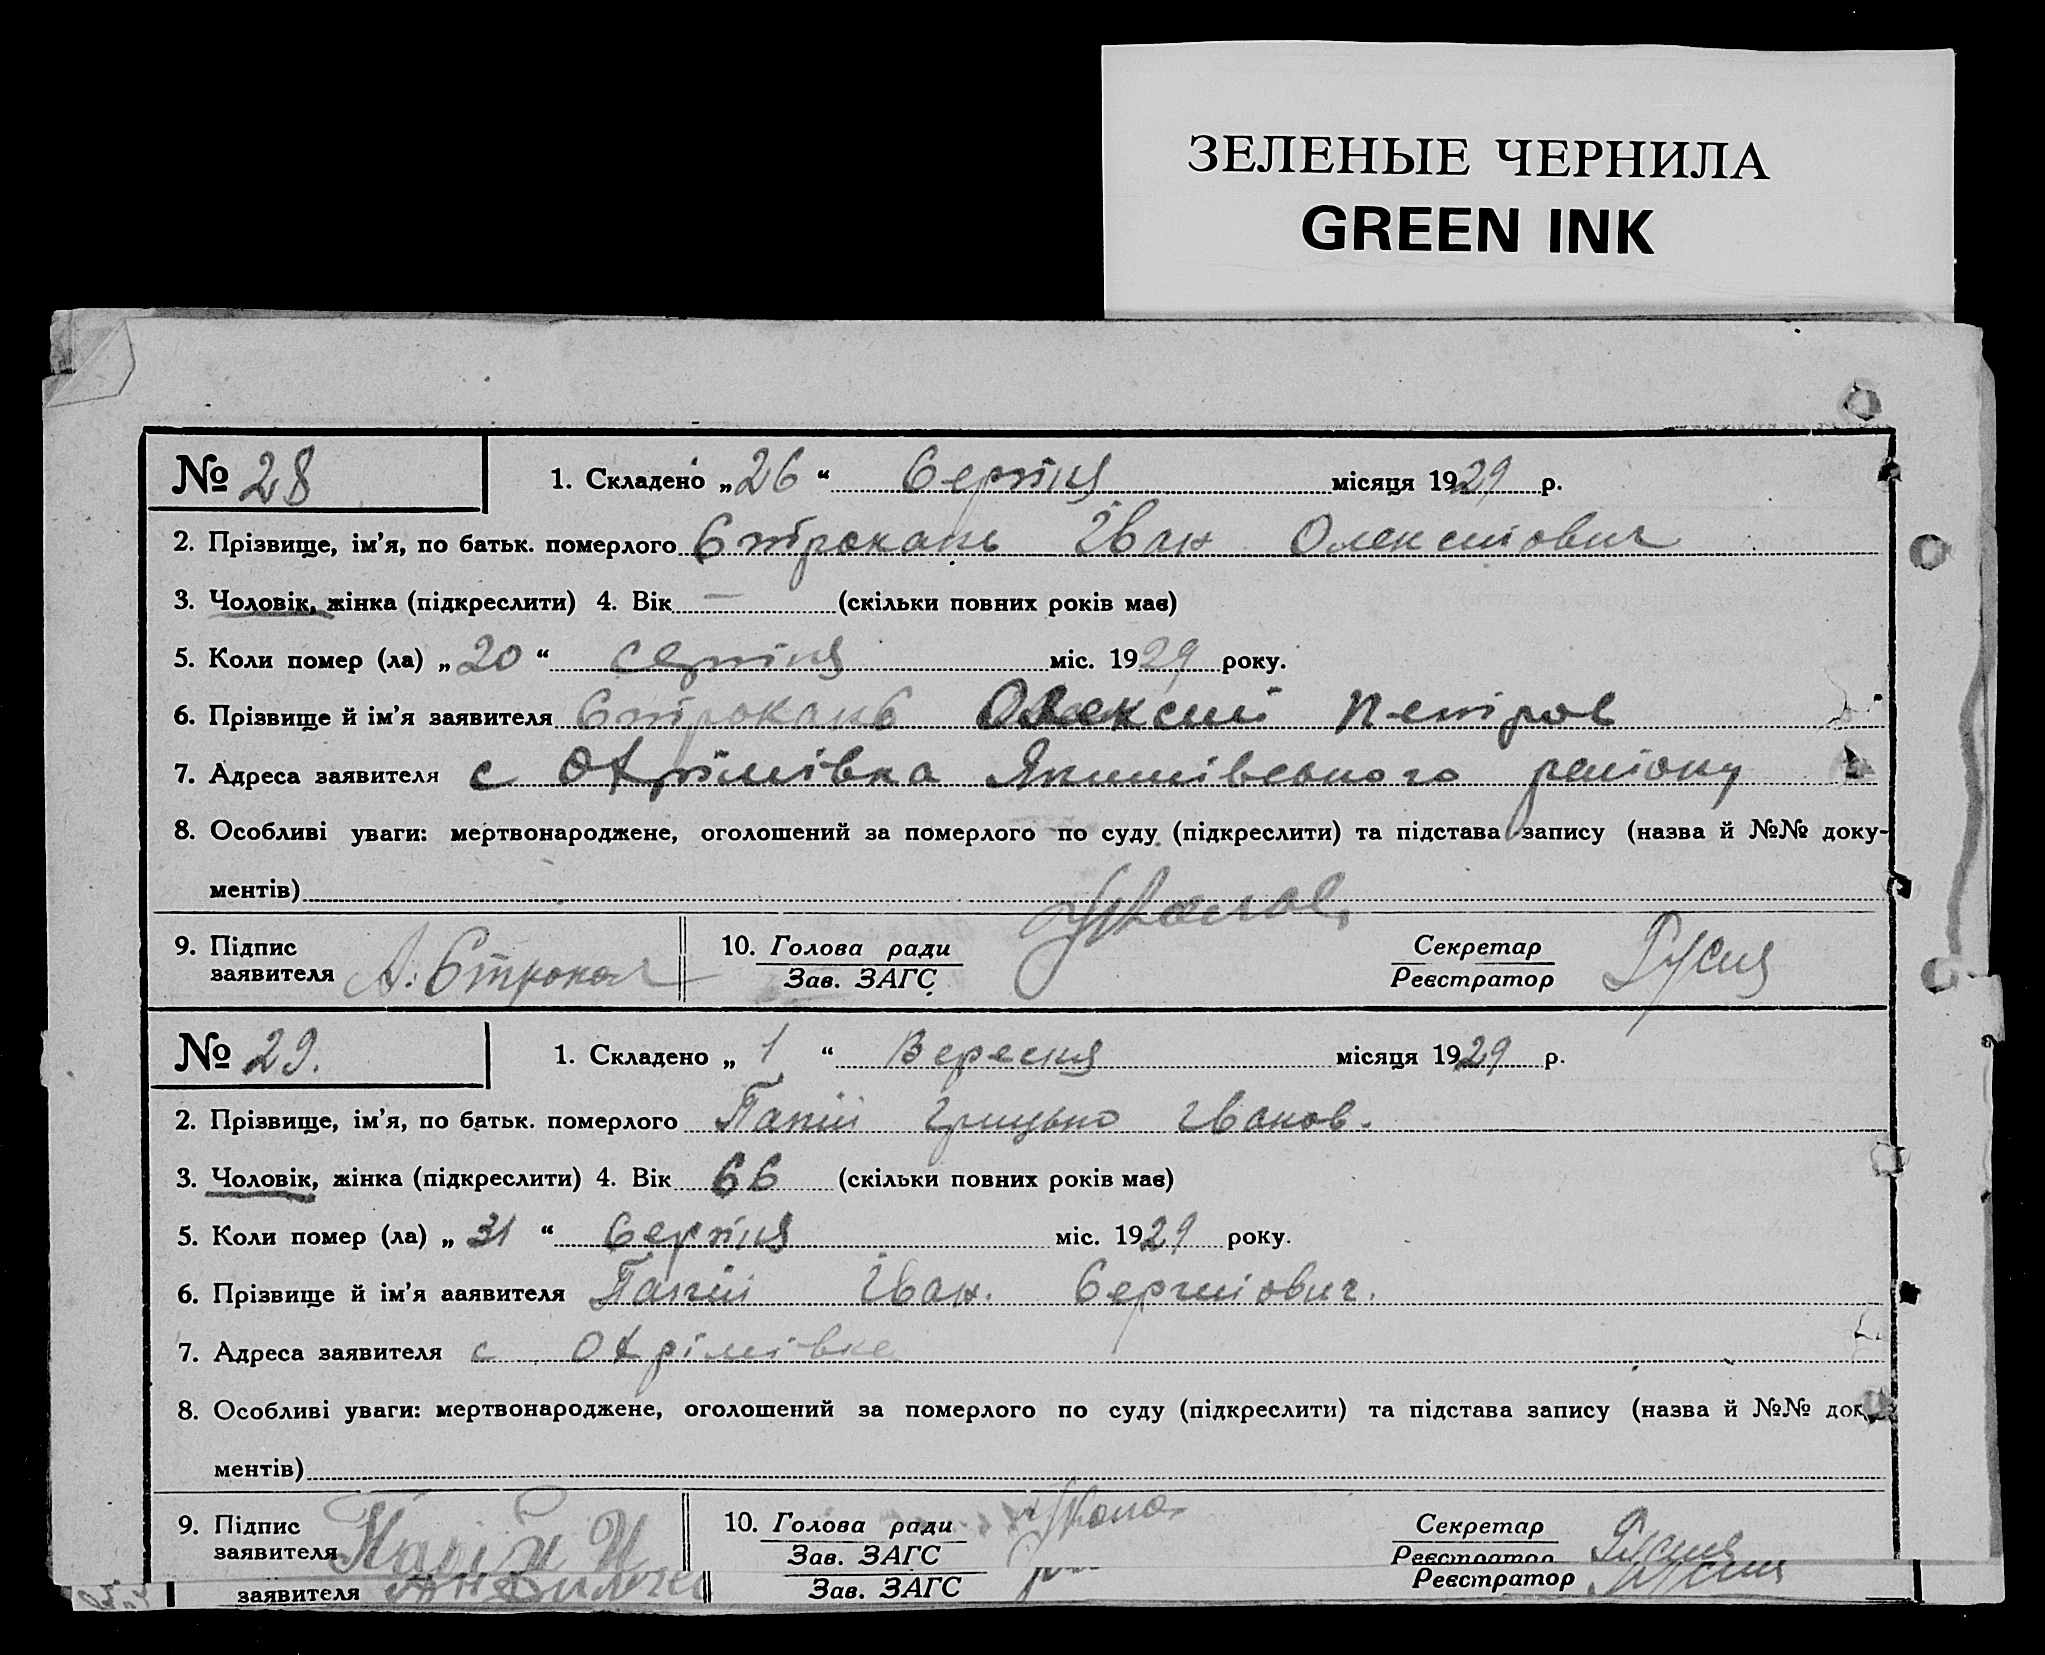 ЗЕЛЕНЫЕ ЧЕРНИЛА
GREEN INK
№ 28 1. Складено „26“ Серпня місяця 1929 р.
2. Прізвище, ім'я, по батьк. померлого Строкань Іван Олексиїович
3. Чоловік, жінка (підкреслити) 4. Вік — (скільки повних років має)
5. Коли помер (ла) „20“ серпіня міс. 1929 року.
6. Прізвище й ім'я заявителя Строкань Олексиі Петров
7. Адреса заявителя с Охрімівка Якимівського району
8. Особливі уваги: мертвонароджене, оголошений за померлого по суду (підкреслити) та підстава запису (назва й №№ доку-
ментів)
9. Підпис заявителя А. Строкан 10. Голова ради Секретар
Зав. ЗАГС Реєстратор
№ 29. 1. Складено „1“ Вересня місяця 1929 р.
2. Прізвище, ім'я, по батьк. померлого Папіи Грицько Іванов.
3. Чоловік, жінка (підкреслити) 4. Вік 66 (скільки повних років має)
5. Коли помер (ла) „31“ Серпіня міс. 1929 року.
6. Прізвище й ім'я ааявителя Папіи Іван. Сергиіович.
7. Адреса заявителя с Охрімівка
8. Особливі уваги: мертвонароджене, оголошений за померлого по суду (підкреслити) та підстава запису (назва й №№ док
ментів)
9. Підпис заявителя Папій И 10. Голова ради Секретар
Зав. ЗАГС Реєстратор
заявителя Зав. ЗАГС Реєстратор